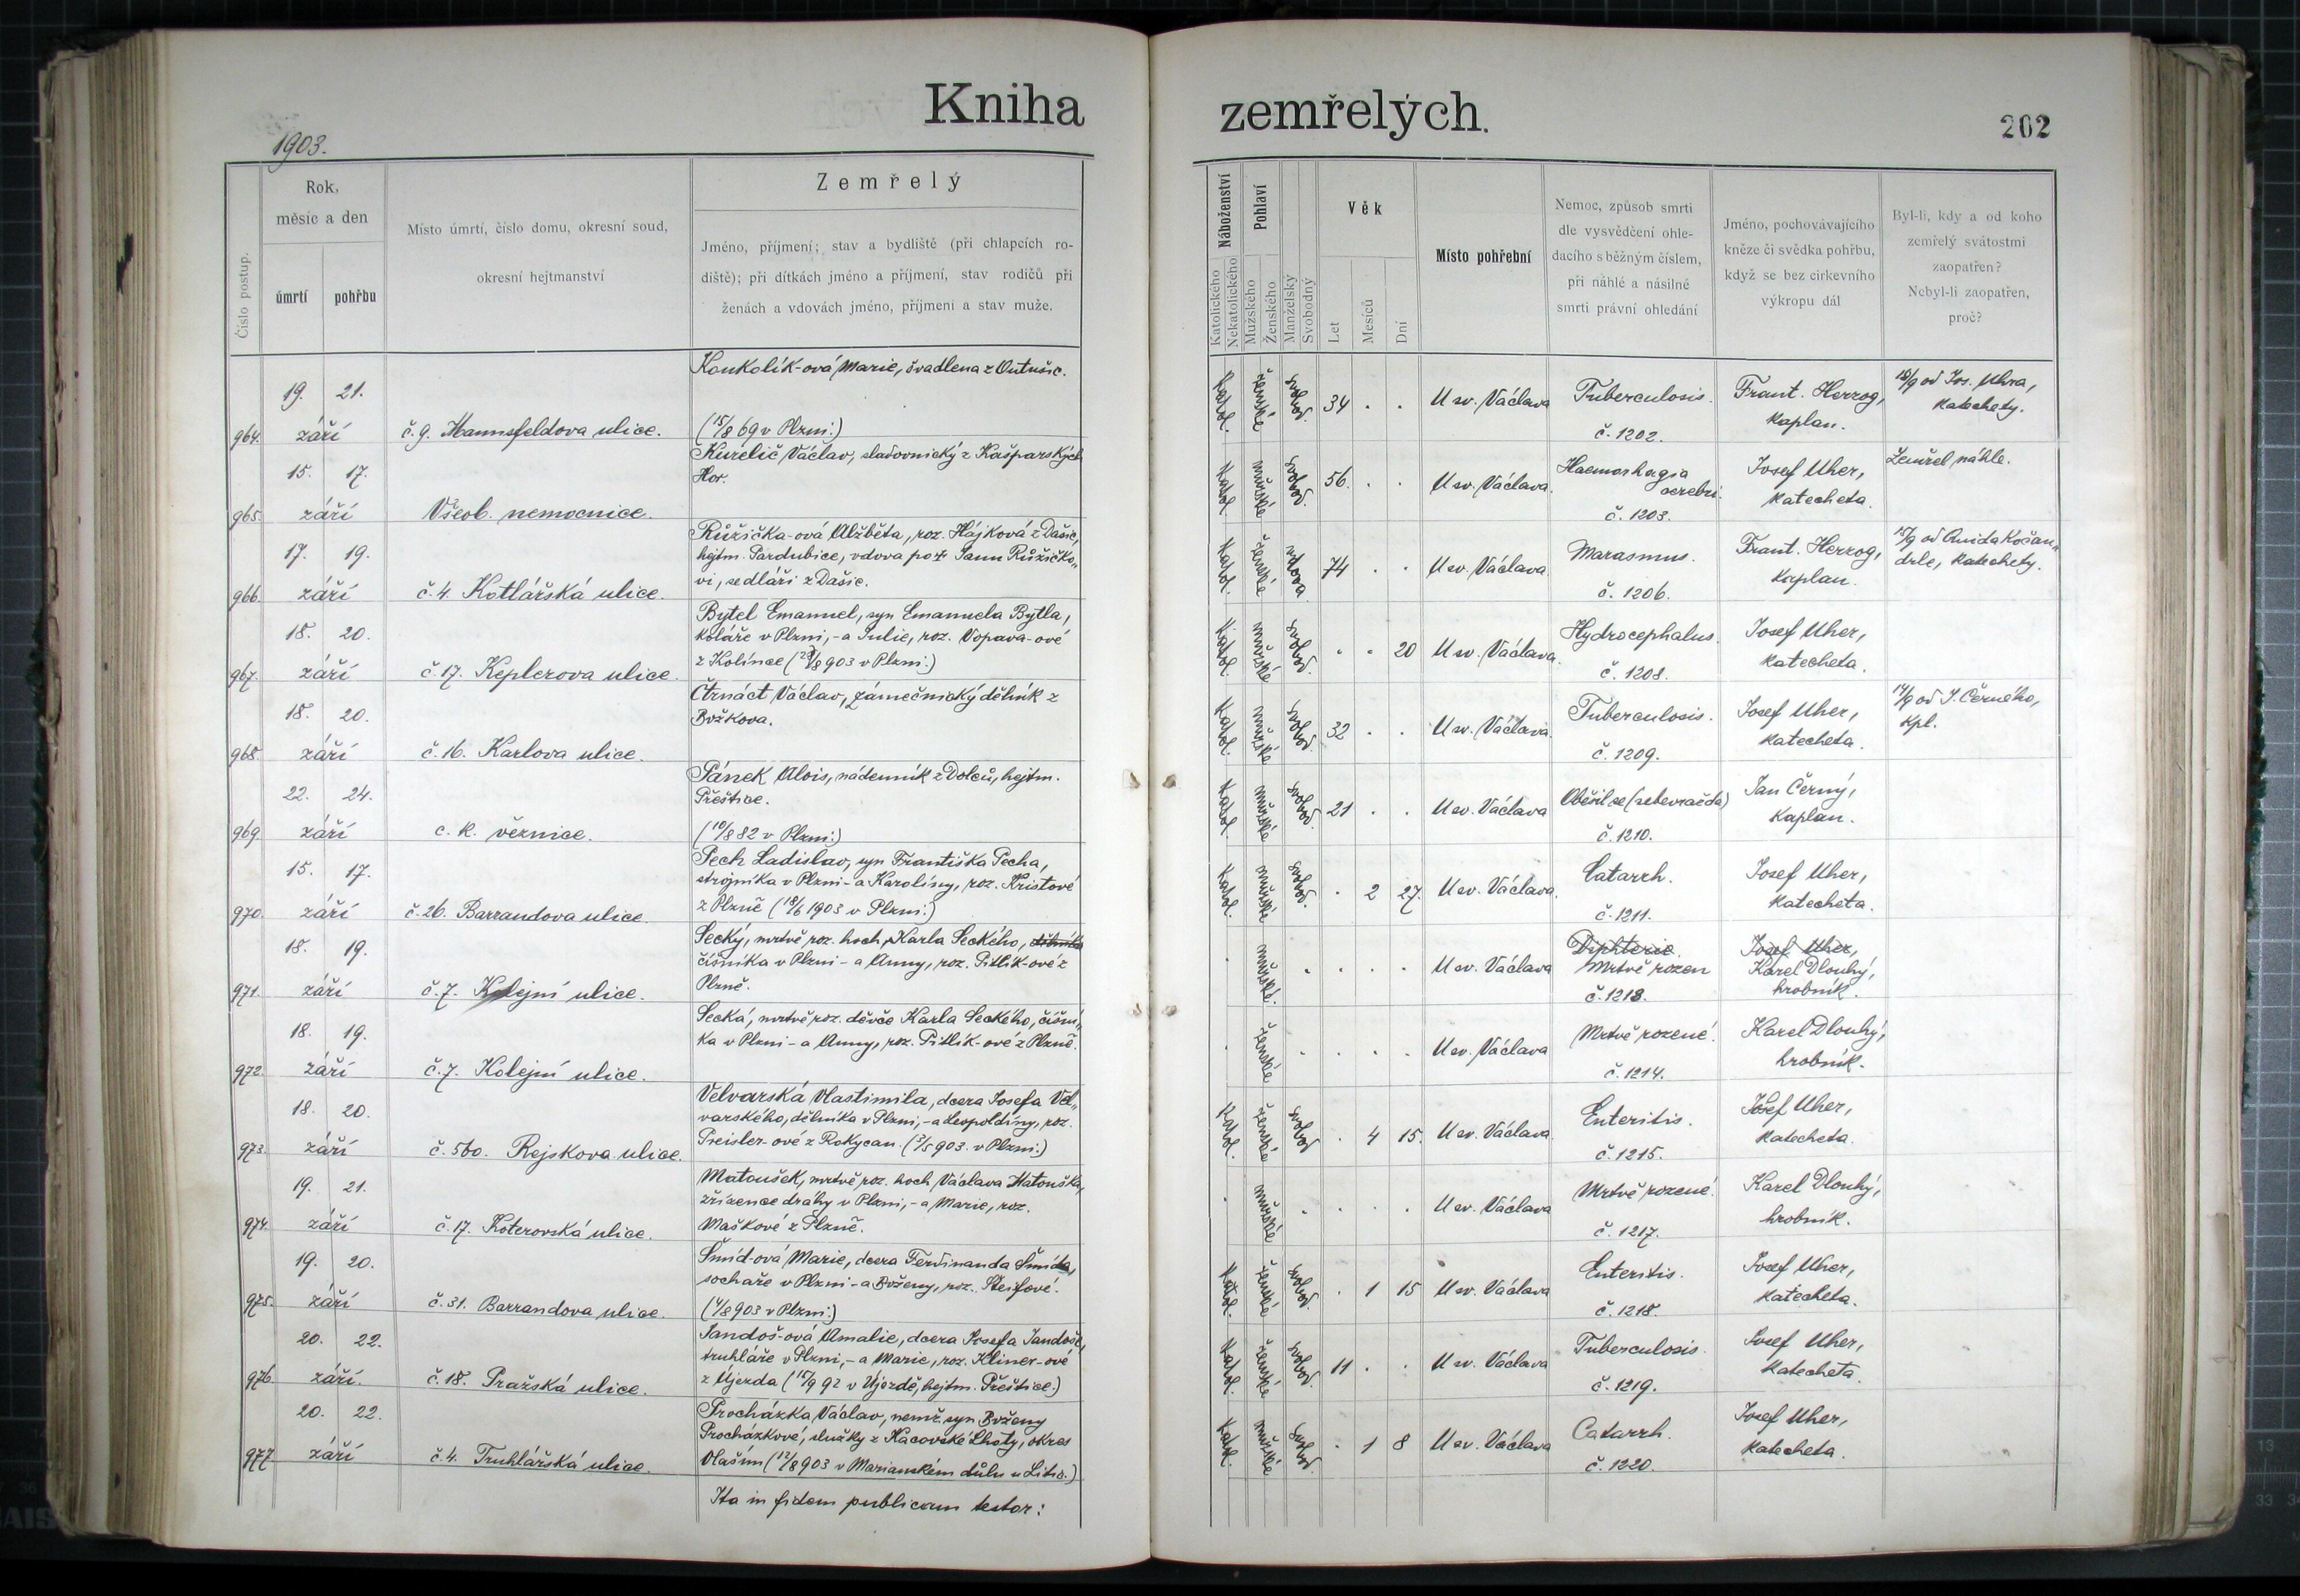 Kniha zemřelých.
202
1903.
Číslo postup.
Rok,
měsíc a den
úmrtí
pohřbu
Místo úmrtí, číslo domu, okresní soud,
okresní hejtmanství
Zemřelý
Jméno, příjmení; stav a bydliště (při chlapcích ro-
diště); při dítkách jméno a příjmení, stav rodičů při
ženách a vdovách jméno, příjmení a stav muže.
Náboženství
Katolického
Nekatolického
Pohlaví
Mužského
Ženského
Manželský
Svobodný
Věk
Let
Mesíců
Dní
Místo pohřební
Nemoc, způsob smrti
dle vysvědčení ohle-
dacího s běžným číslem,
při náhlé a násilné
smrti právní ohledání
Jméno, pochovávajícího
kněze či svědka pohřbu,
když se bez církevního
výkropu dál
Byl-li, kdy a od koho
zemřelý svátostmi
zaopatřen?
Nebyl-li zaopatřen,
proč?
964. 19. 21. září
č. 9. Mannsfeldova ulice.
Koukolík-ová Marie, švadlena z Outušic.
(15/8 69 v Plzni.)
Katol. ženské svobod. 34 . . U sv. Václava
Tuberculosis.
č. 1202.
Frant. Herzog,
kaplan.
18/9 od Jos. Uhra,
katechety.
965. 15. 17. září
Všeob. nemocnice.
Kurelič Václav, sladovnický z Kašparských
Hor.
Katol. mužské svobod. 56. . . U sv. Václava.
Haemorhagia
cerebri.
č. 1203.
Josef Uher,
katecheta.
Zemřel náhle.
966. 17. 19. září
č. 4. Kotlářská ulice.
Růžička-ová Alžběta, roz. Hájková z Dašic,
hejtm. Pardubice, vdova po † Janu Růžičko„
vi, sedláři z Dašic.
Katol. ženské vdova 74 . . U sv. Václava.
Marasmus.
č. 1206.
Frant. Herzog,
kaplan.
15/9 od Quida Kočan„
drle, katechety.
967. 18. 20. září
č. 17. Keplerova ulice.
Bytel Emanuel, syn Emanuela Bytla,
koláře v Plzni, - a Julie, roz. Vopava-ové
z Kolínce (29/8 903 v Plzni.)
Katol. mužské svobod. . . 20 U sv. Václava.
Hydrocephalus.
č. 1208.
Josef Uher,
katecheta.
968. 18. 20. září
č. 16. Karlova ulice.
Čtrnáct Václav, zámečnický dělník z
Božkova.
Katol. mužské svobod. 32 . . U sv. Václava.
Tuberculosis.
č. 1209.
Josef Uher,
katecheta.
14/9 od J. Černého,
kpl.
969. 22. 24. září
c. k. věznice.
Pánek Alois, nádenník z Dolců, hejtm.
Přeštice.
(10/8 82 v Plzni.)
Katol. mužské svobod. 21 . . U sv. Václava
Oběsil se (sebevražda)
č. 1210.
Jan Černý,
kaplan.
970. 15. 17. září
č. 26. Barrandova ulice.
Pech Ladislav, syn Františka Pecha,
strojníka v Plzni - a Karolíny, roz. Kristové
z Plzně (18/6 1903 v Plzni.)
Katol. mužské svobod. . 2 27. U sv. Václava.
Catarrh.
č. 1211.
Josef Uher,
katecheta.
971. 18. 19. září
č. 7. Kolejní ulice.
Secký, mrtvě roz. hoch, Karla Seckého, dělníka
číšníka v Plzni - a Anny, roz. Pitlík-ové z
Plzně.
. mužské . . . . U sv. Václava
Diphterie.
Mrtvě rozen
č. 1213.
Josef Uher,
Karel Dlouhý,
hrobník.
972. 18. 19. září
č. 7. Kolejní ulice.
Secká, mrtvě roz. děvče Karla Seckého, číšní„
ka v Plzni - a Anny, roz. Pitlík-ové z Plzně.
. ženské . . . . U sv. Václava
Mrtvě rozené.
č. 1214.
Karel Dlouhý,
hrobník.
973. 18. 20. září
č. 560. Rejskova ulice.
Velvarská Vlastimila, dcera Josefa Vel„
varského, dělníka v Plzni, - a Leopoldíny, roz.
Preisler-ové z Rokycan. (3/5 903. v Plzni.)
Katol. ženské svobod . 4 15. U sv. Václava.
Enteritis.
č. 1215.
Josef Uher,
katecheta.
974. 19. 21. září
č. 17. Koterovská ulice.
Matoušek, mrtvě roz. hoch, Václava Matouška,
zřízence dráhy v Plzni, - a Marie, roz.
Maškové z Plzně.
. mužské . . . . U sv. Václava
Mrtvě rozené.
č. 1217.
Karel Dlouhý,
hrobník.
975. 19. 20. září
č. 31. Barrandova ulice.
Šmíd-ová Marie, dcera Ferdinanda Šmída,
sochaře v Plzni - a Boženy, roz. Šteifové.
(4/8 903 v Plzni.)
Katol. ženské svobod. . 1 15 U sv. Václava
Enteritis.
č. 1218.
Josef Uher,
katecheta.
976. 20. 22. září.
č. 18. Pražská ulice.
Jandoš-ová Amalie, dcera Josefa Jandoše,
truhláře v Plzni, - a Marie, roz. Kliner-ové
z Újezda (15/9 92 v Újezdě, hejtm. Přeštice.)
Katol. ženské svobod. 11 . . U sv. Václava
Tuberculosis.
č. 1219.
Josef Uher,
katecheta.
977. 20. 22. září
č. 4. Truhlářská ulice.
Procházka Václav, nemž. syn Boženy
Procházkové, služky z Kácovské Lhoty, okres
Vlašim (12/8 903 v Marianském důlu u Litic.)
Katol. mužské svobod. . 1 8 U sv. Václava
Catarrh.
č. 1220.
Josef Uher,
katecheta.
Ita in fidem publicam testor: